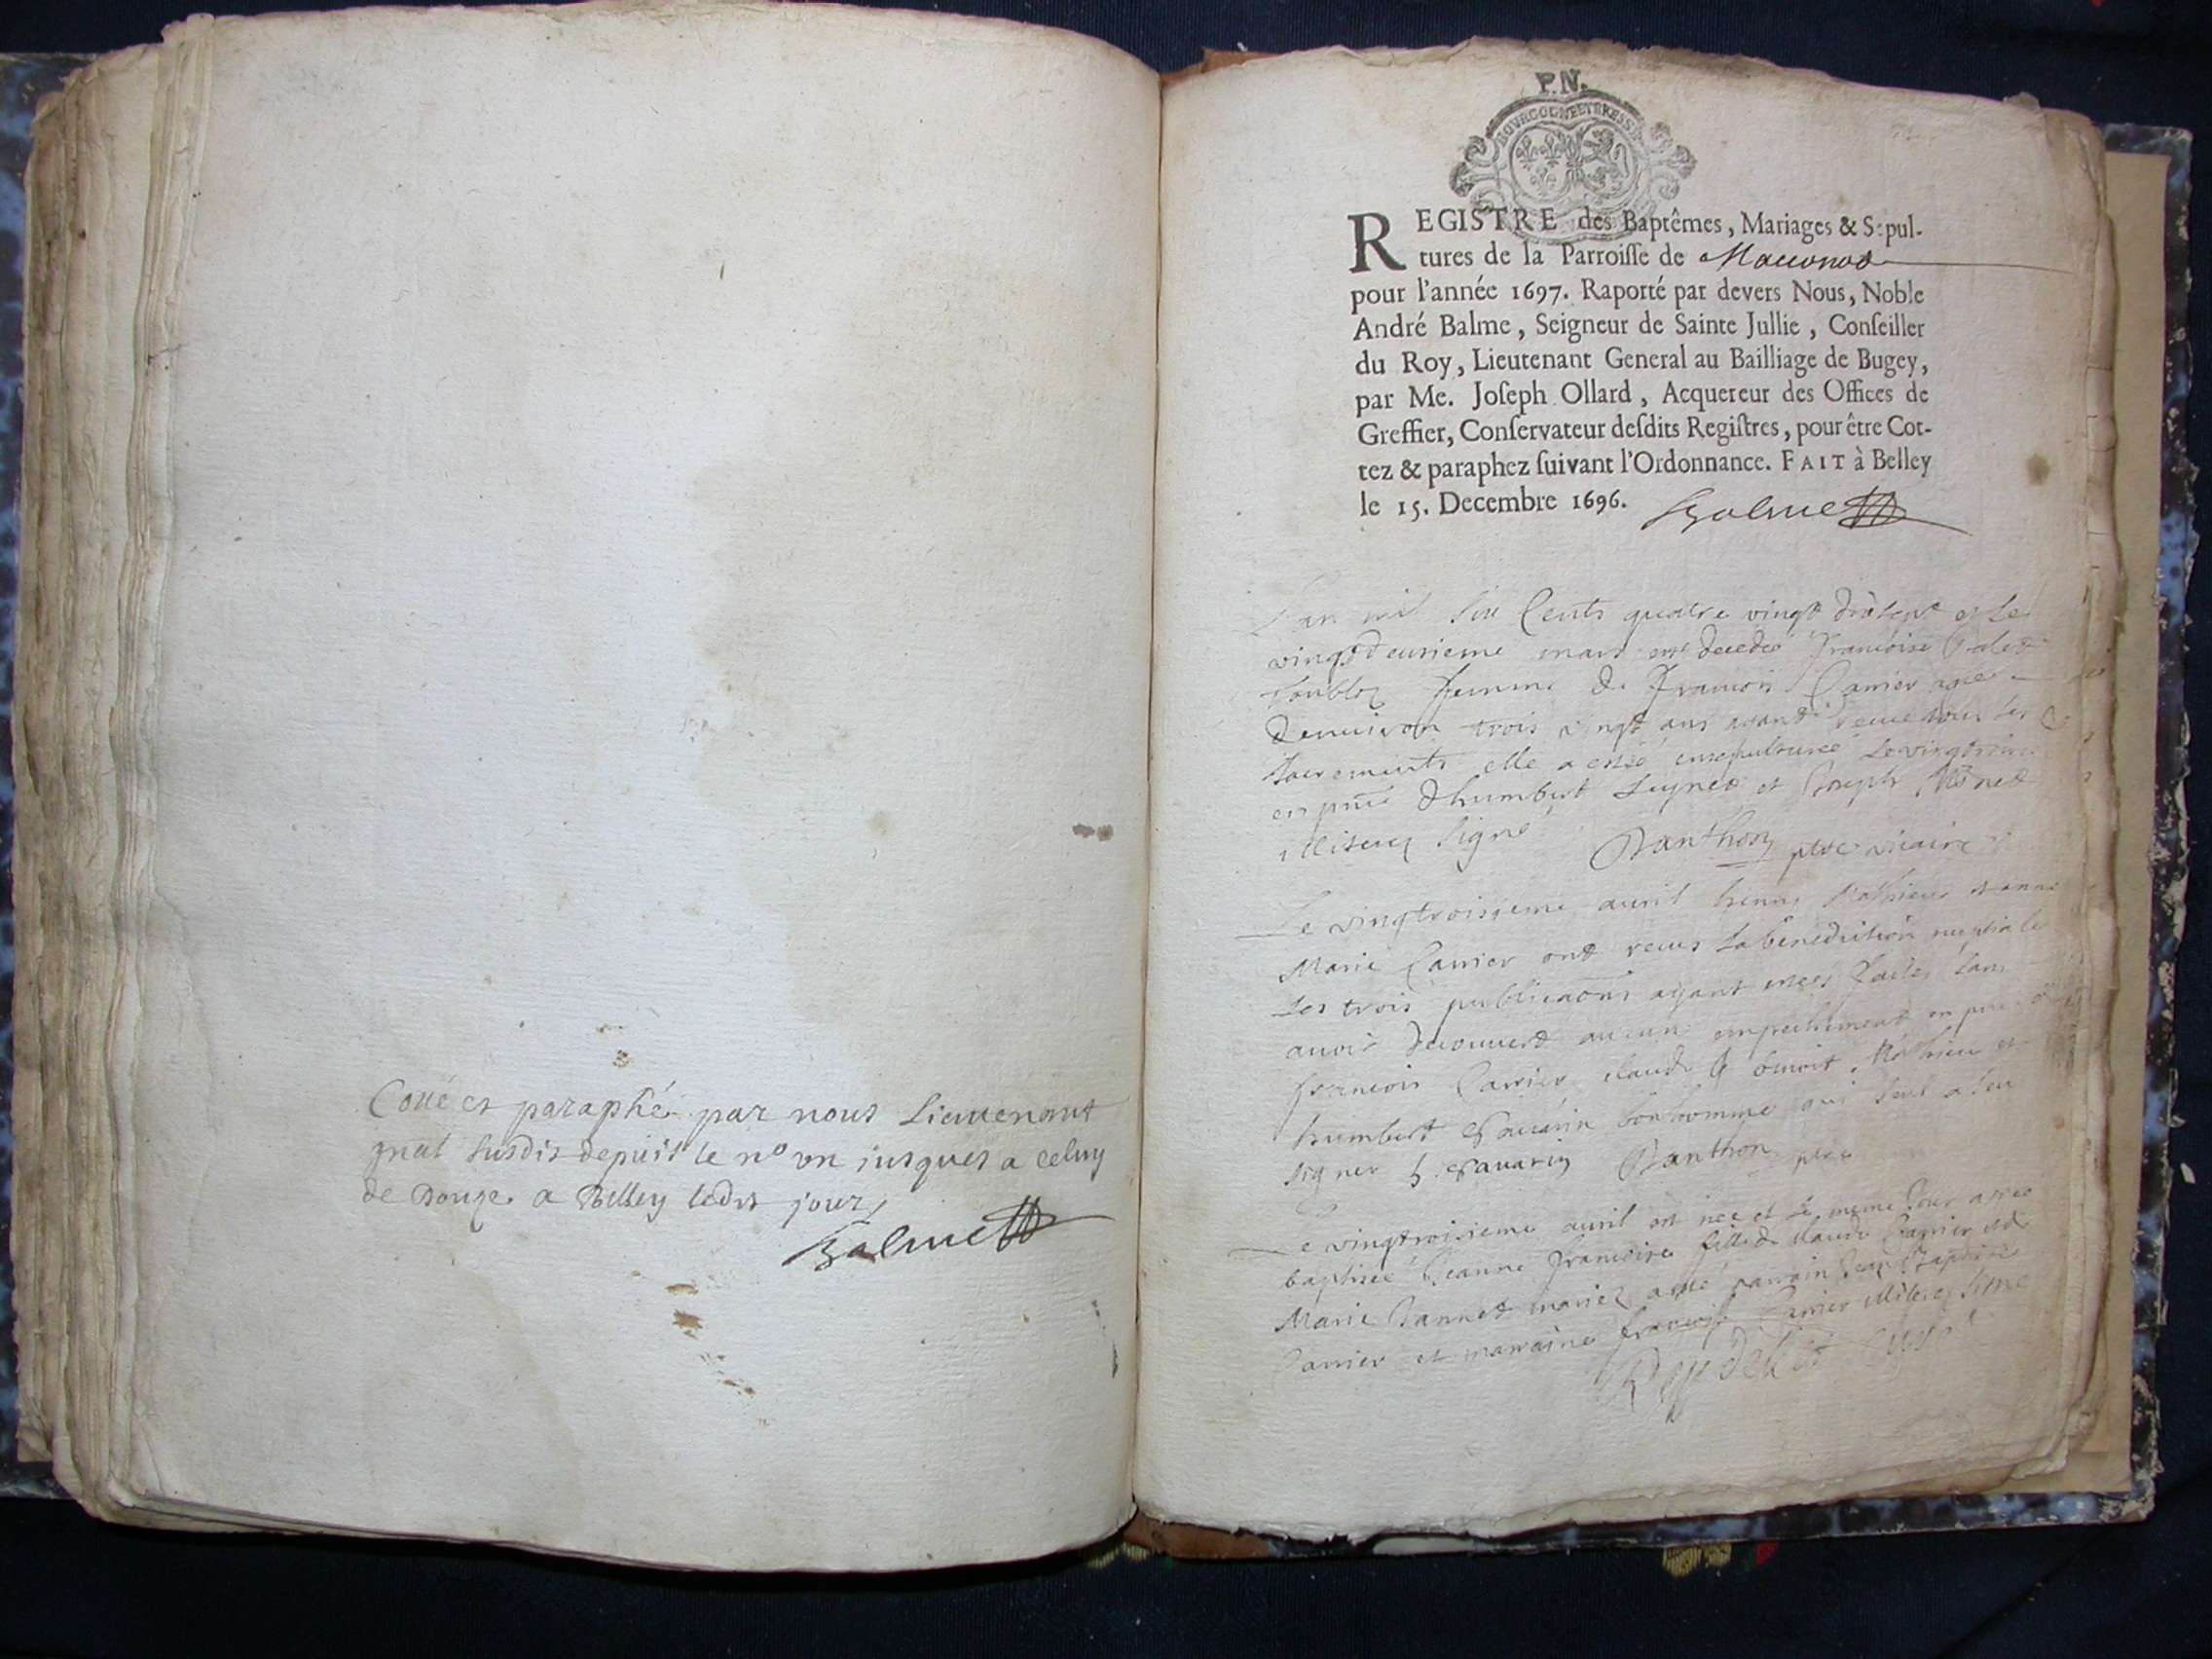 Cotté et paraphé par nous Lieutenant
gnal susdit depuis le no un jusques a celuy
de Douze a Belley ledit jour
Balme
P.N.
BOVRGOGNE ET BRESSE
REGISTRE des Baptêmes, Mariages & Sepul-
tures de la Parroisse de Macconod
pour l'année 1697. Raporté par devers Nous, Noble
André Balme, Seigneur de Sainte Jullie, Conseiller
du Roy, Lieutenant General au Bailliage de Bugey,
par Me. Joseph Ollard, Acquereur des Offices de
Greffier, Conservateur desdits Registres, pour être Cot-
tez & paraphez suivant l'Ordonnance. FAIT à Belley
le 15. Decembre 1696. Balme
L'an mil six Cents quatre vingt et le
vingtdeuxieme mars est decedee Françoise
femme de François Carrier agee
denuiron trois vingt ans ayant receu tous les
sacrements elle a esté ensepulturee le
en pnce d'humbert et Joseph
signé Banthon ptre vicaire
Le vingtroisieme auril
Marie Carrier ont receus la benediction nuptiale
les trois publicaons ayant estees faites sans
auoir decouuert aucun empechement en pnce
françois Carrier claude
humbert bonhomme qui seul a sceu
signer h. Pauarin Banthon ptre
Le vingtroisieme auril est nee et le meme jour a estee
baptisee Jeanne françoise fille de claude Carrier et de
Marie mariez a esté parrain Jean Baptiste
Carrier et marraine françoise Carrier
curé